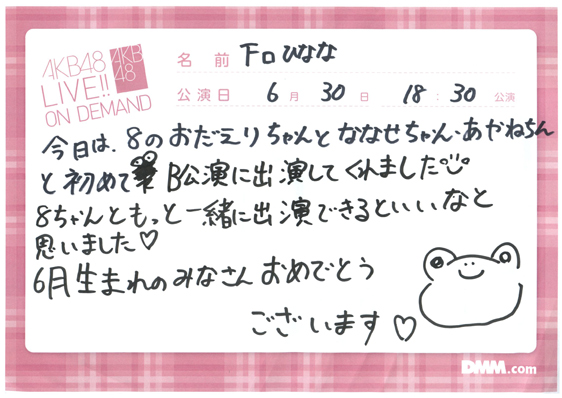 AKB48
LIVE!!
ON DEMAND
AKB
48
名前 下口ひなな
公演日 6月30日 18:30公演
今日は、8のおだえりちゃんとななせちゃん・あやねちん
と初めてB公演に出演してくれました
8ちゃんともっと一緒に出演できるといいなと
思いました♡
6月生まれのみなさんおめでとう
ございます♡
DMM.com